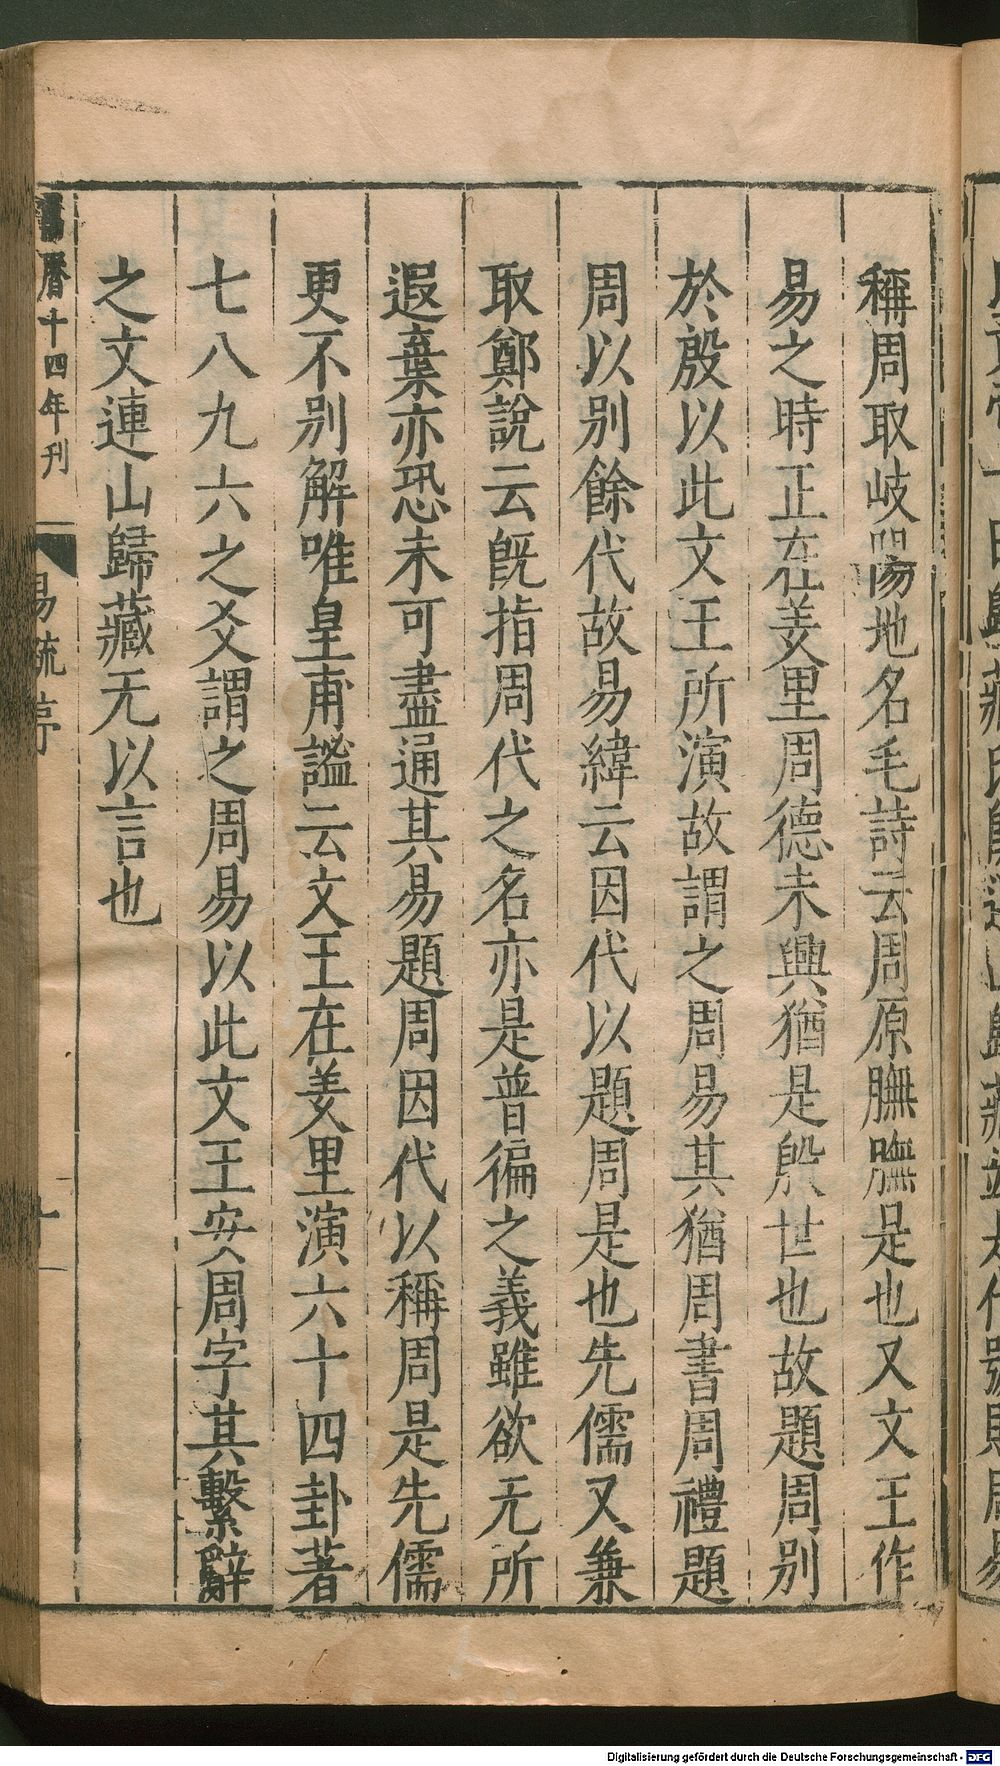 稱周取岐陽地名毛詩云周原膴膴是也又文王作
易之時正在羑里周德未興猶是殷世也故題周别
於殷以此文王所演故謂之周易其猶周書周禮題
周以别餘代故易緯云因代以題周是也先儒又兼
取鄭說云旣指周代之名亦是普徧之義雖欲无所
遐棄亦恐未可盡通其易題周因代以稱周是先儒
更不别解唯皇甫謐云文王在羑里演六十四卦著
七八九六之爻謂之周易以此文王安周字其繫辭
之文連山歸藏无以言也
曆十四年刊
易疏序
九
Digitalisierung gefördert durch die Deutsche Forschungsgemeinschaft - DFG